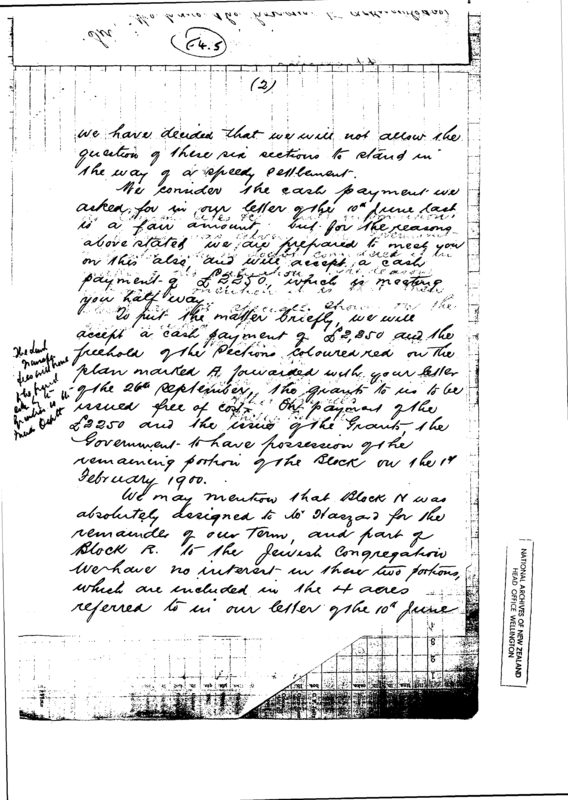 E4.5
(2)
we have decided that we will not allow the
question of these six sections to stand in
the way of a speedy settlement.
We consider the cash payment we
asked for in our letter of the 10th June last
is a fair amount but for the reasons
above stated we are prepared to meet you
on this also and will accept a cash
payment of £2250, which is meeting
you half way.
To put the matter briefly, we will
accept a cash payment of £2,250 and the
freehold of the Sections coloured red on the
plan marked A forwarded with your letter
of the 26th September, the grants to us to be
issued free of cost. On payment of the
£2250 and the issue of the Grants the
Government to have possession of the
remaining portion of the Block on the 1st
February 1900.
We may mention that Block N was
absolutely assigned to Mr Haszard for the
remainder of our Term, and part of
Block R. to the Jewish Congregation
We have no interest in these two portions,
which are included in the 4 acres
referred to in our letter of the 10th June
The Land
fees will have
to be
NATIONAL ARCHIVES OF NEW ZEALAND
HEAD OFFICE WELLINGTON